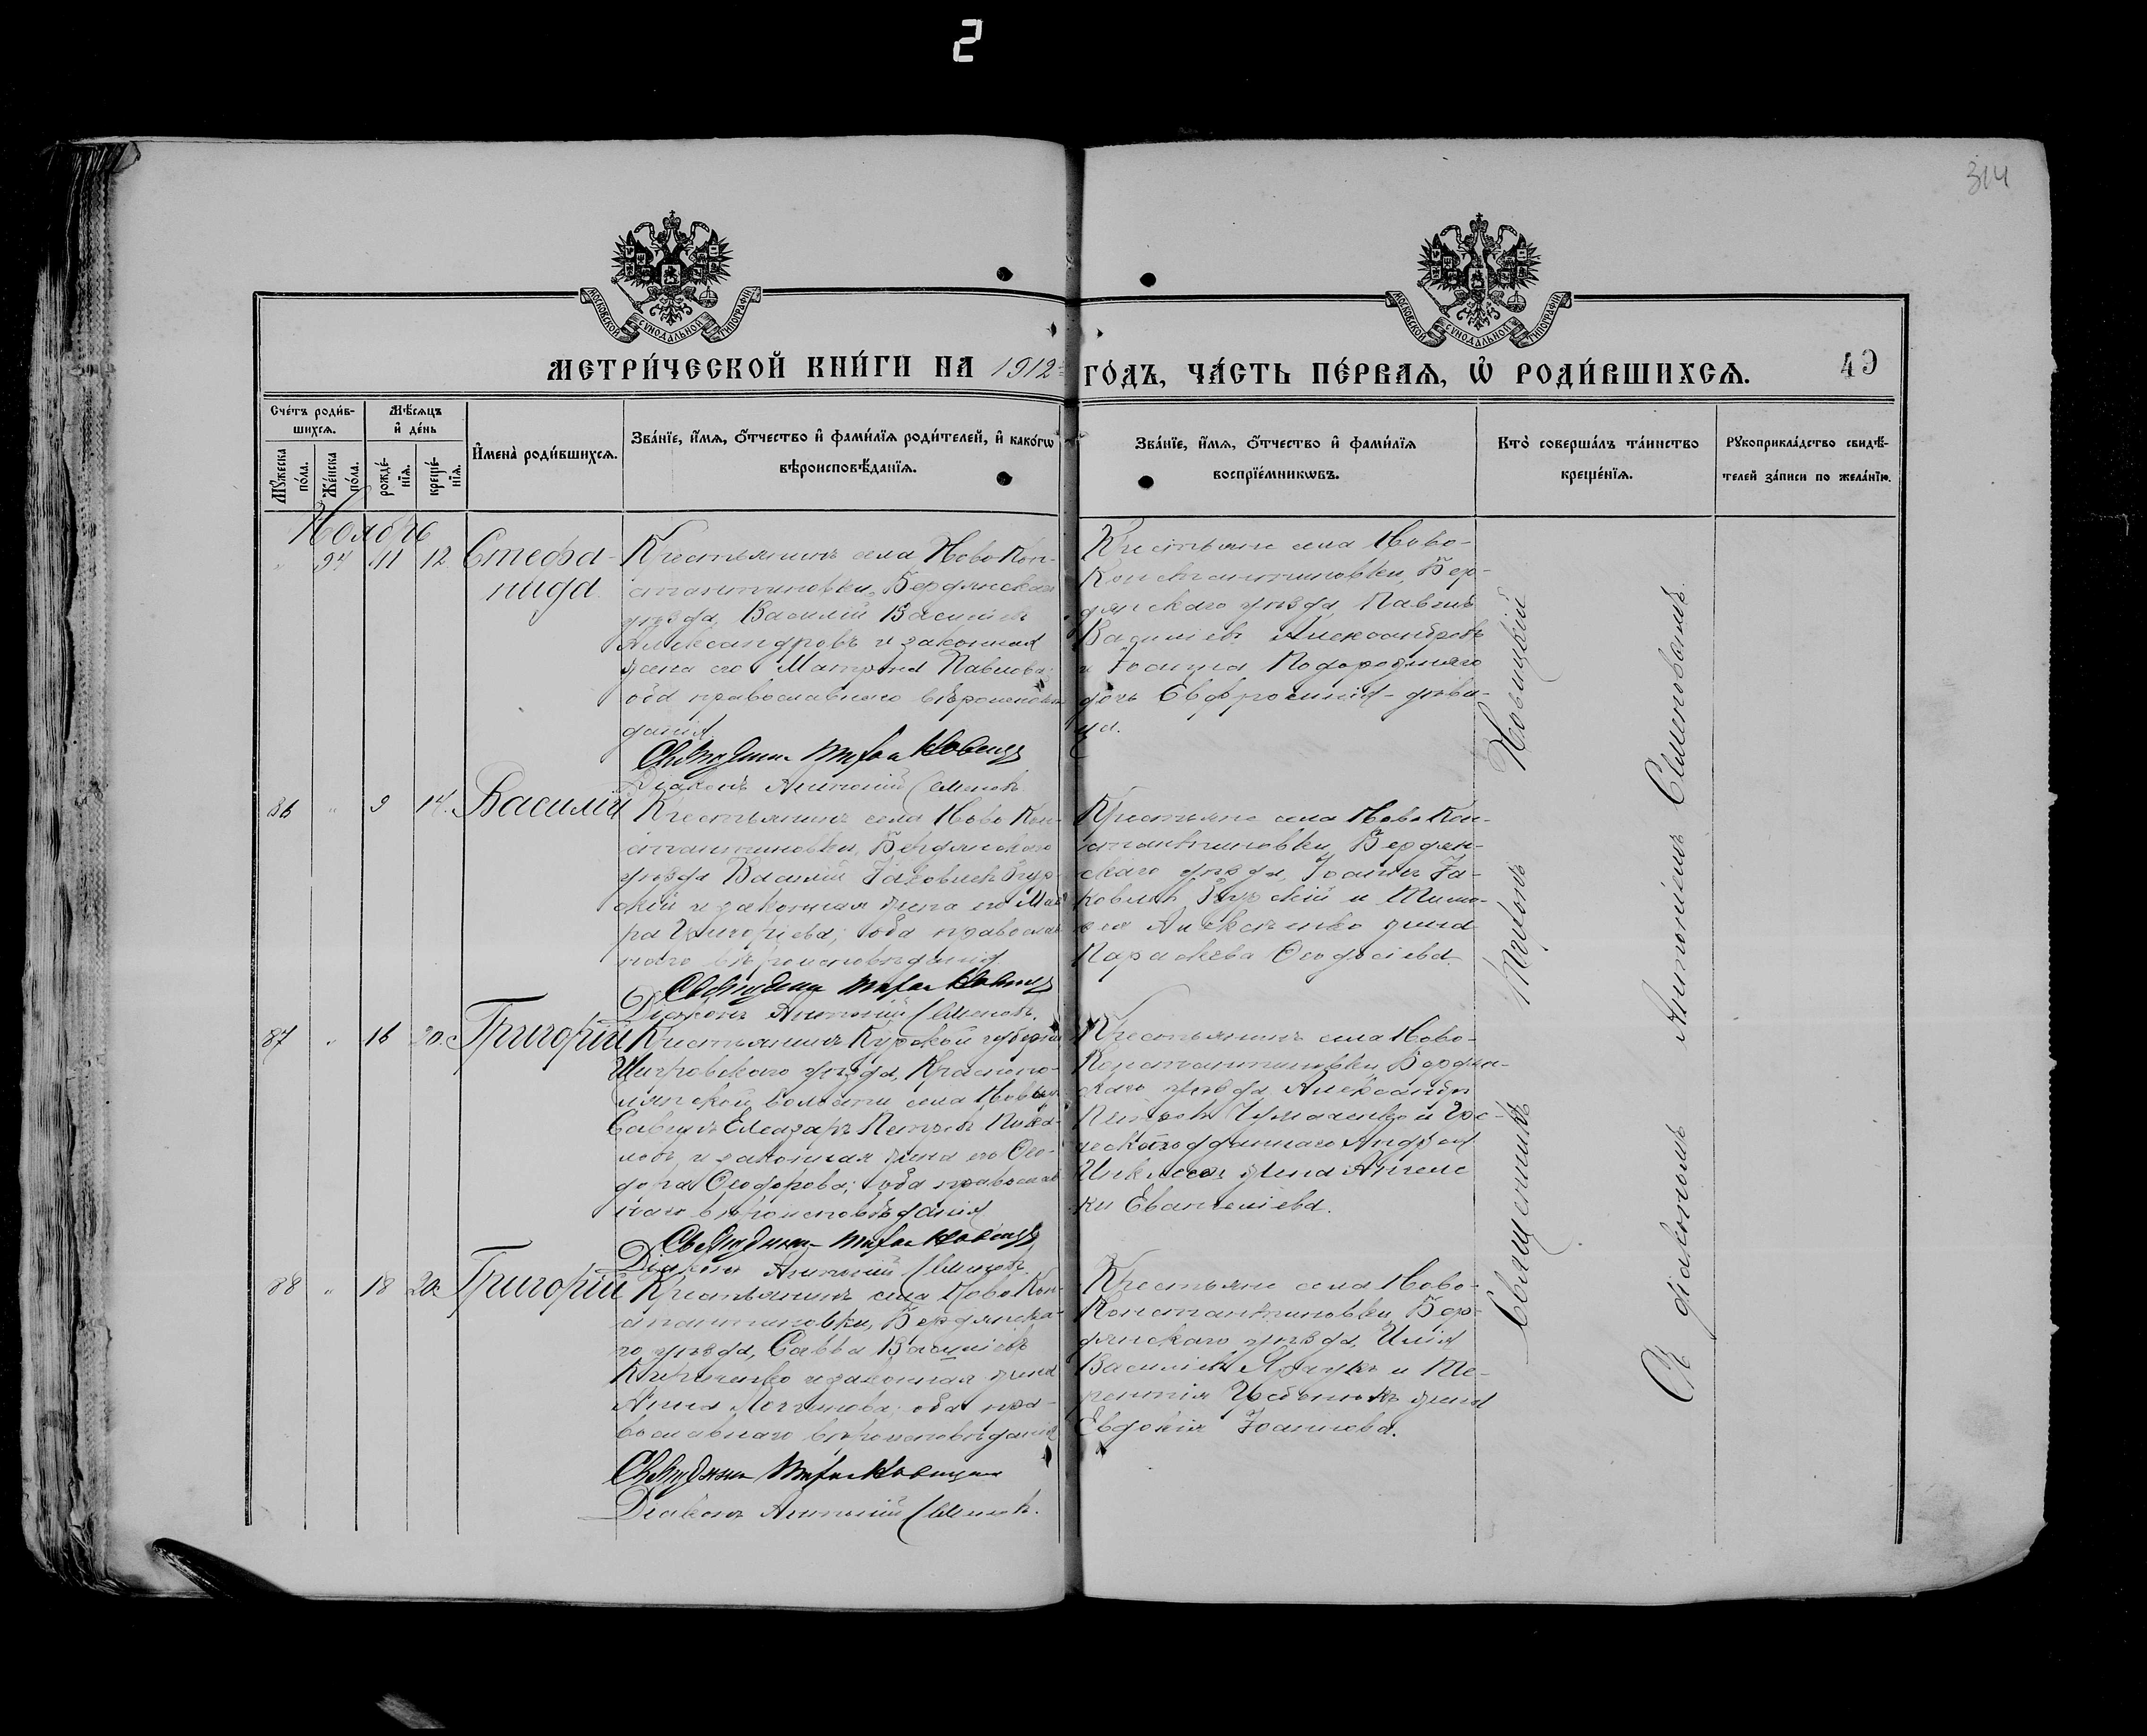 2
314
МОСКОВСКОЙ СУНОДАЛЬНОЙ ТИПОГРАФІИ
МОСКОВСКОЙ СУНОДАЛЬНОЙ ТИПОГРАФІИ
МЕТРИ́ЧЕСКОЙ КНИ́ГИ НА 1912 ГО́ДЪ, ЧА́СТЬ ПЕ́РВАѦ, Ѡ҆ РОДИ́ВШИХСѦ.
49
Сче́тъ роди́в-
шихсѧ.
Мꙋ́жеска по́ла.
Же́нска по́ла.
Мѣ́сѧцъ
и҆ де́нь
рожде́-
нїѧ.
креще́-
нїѧ.
И҆мена̀ роди́вшихсѧ.
Зва́нїе, и҆́мѧ, ѻ҆́тчество и҆ фами́лїѧ роди́телей, и҆ како́гѡ
вѣроисповѣ́данїѧ.
Зва́нїе, и҆́мѧ, ѻ҆́тчество и҆ фами́лїѧ
воспрїе́мникѡвъ.
Кто̀ соверша́лъ та́инство
креще́нїѧ.
Рꙋкоприкла́дство свидѣ́-
телей за́писи по жела́нїю.
Ноябрь
" 94 11 12. Стефа-
нида.
Крестьянинъ села Ново Кон-
стантиновки, Бердянскаго
уѣзда, Василій Васильевъ
Александровъ и законная
жена его Матрона Павлова;
оба православнаго вѣроисповѣ-
данія.
Священникъ Новицкій
Діаконъ Антоній Семеновъ.
Крестьяне села Ново-
Константиновки, Бер-
дянскаго уѣзда, Павелъ
Васильевъ Александровъ
и Іоанна Подгородняго
дочь Евфросинія-дѣви-
ца.
86 " 9 14. Василій
Крестьянинъ села Ново Кон-
стантиновки, Бердянскаго
уѣзда Василій Іаковлевъ
скій и законная жена его Мав-
ра Григоріева; оба православ-
наго вѣроисповѣданія.
Священникъ Новицкій
Діаконъ Антоній Семеновъ.
Крестьяне села Ново Кон-
стантиновки, Бердян-
скаго уѣзда, Іоаннъ Іа-
ковлевъ и Тимо-
ѳея Алексѣенко жена
Параскева Ѳеодосіева.
87 " 16 20. Григорій
Крестьянинъ Курской губерніи
Щигровскаго уѣзда, Краснопо-
лянской волости села
Елеазаръ Петровъ
и законная жена его Ѳео-
дора Ѳеодорова; оба православ-
наго вѣроисповѣданія
Священникъ Новицкій
Діаконъ Антоній Семеновъ.
Крестьянинъ села Ново-
Константиновки, Бердян-
скаго уѣзда, Александръ
Чумаченко и Гре-
ческоподданнаго Андрея
жена Ангели-
ки Евангеліева.
88 " 18 20. Григорій
Крестьянинъ села Ново Кон-
стантиновки, Бердянска-
го уѣзда, Савва Васильевъ
Кириченко и законная жена
Анна Логгинова; оба пра-
вославнаго вѣроисповѣданія
Священникъ Новицкій
Діаконъ Антоній Семеновъ.
Крестьяне села Ново-
Константиновки, Бер-
дянскаго уѣзда, Илія
Васильевъ и Те-
рентія жена
Евдокія Іоаннова.
Священникъ Новицкій
Съ діакономъ Антоніемъ Семеновымъ.